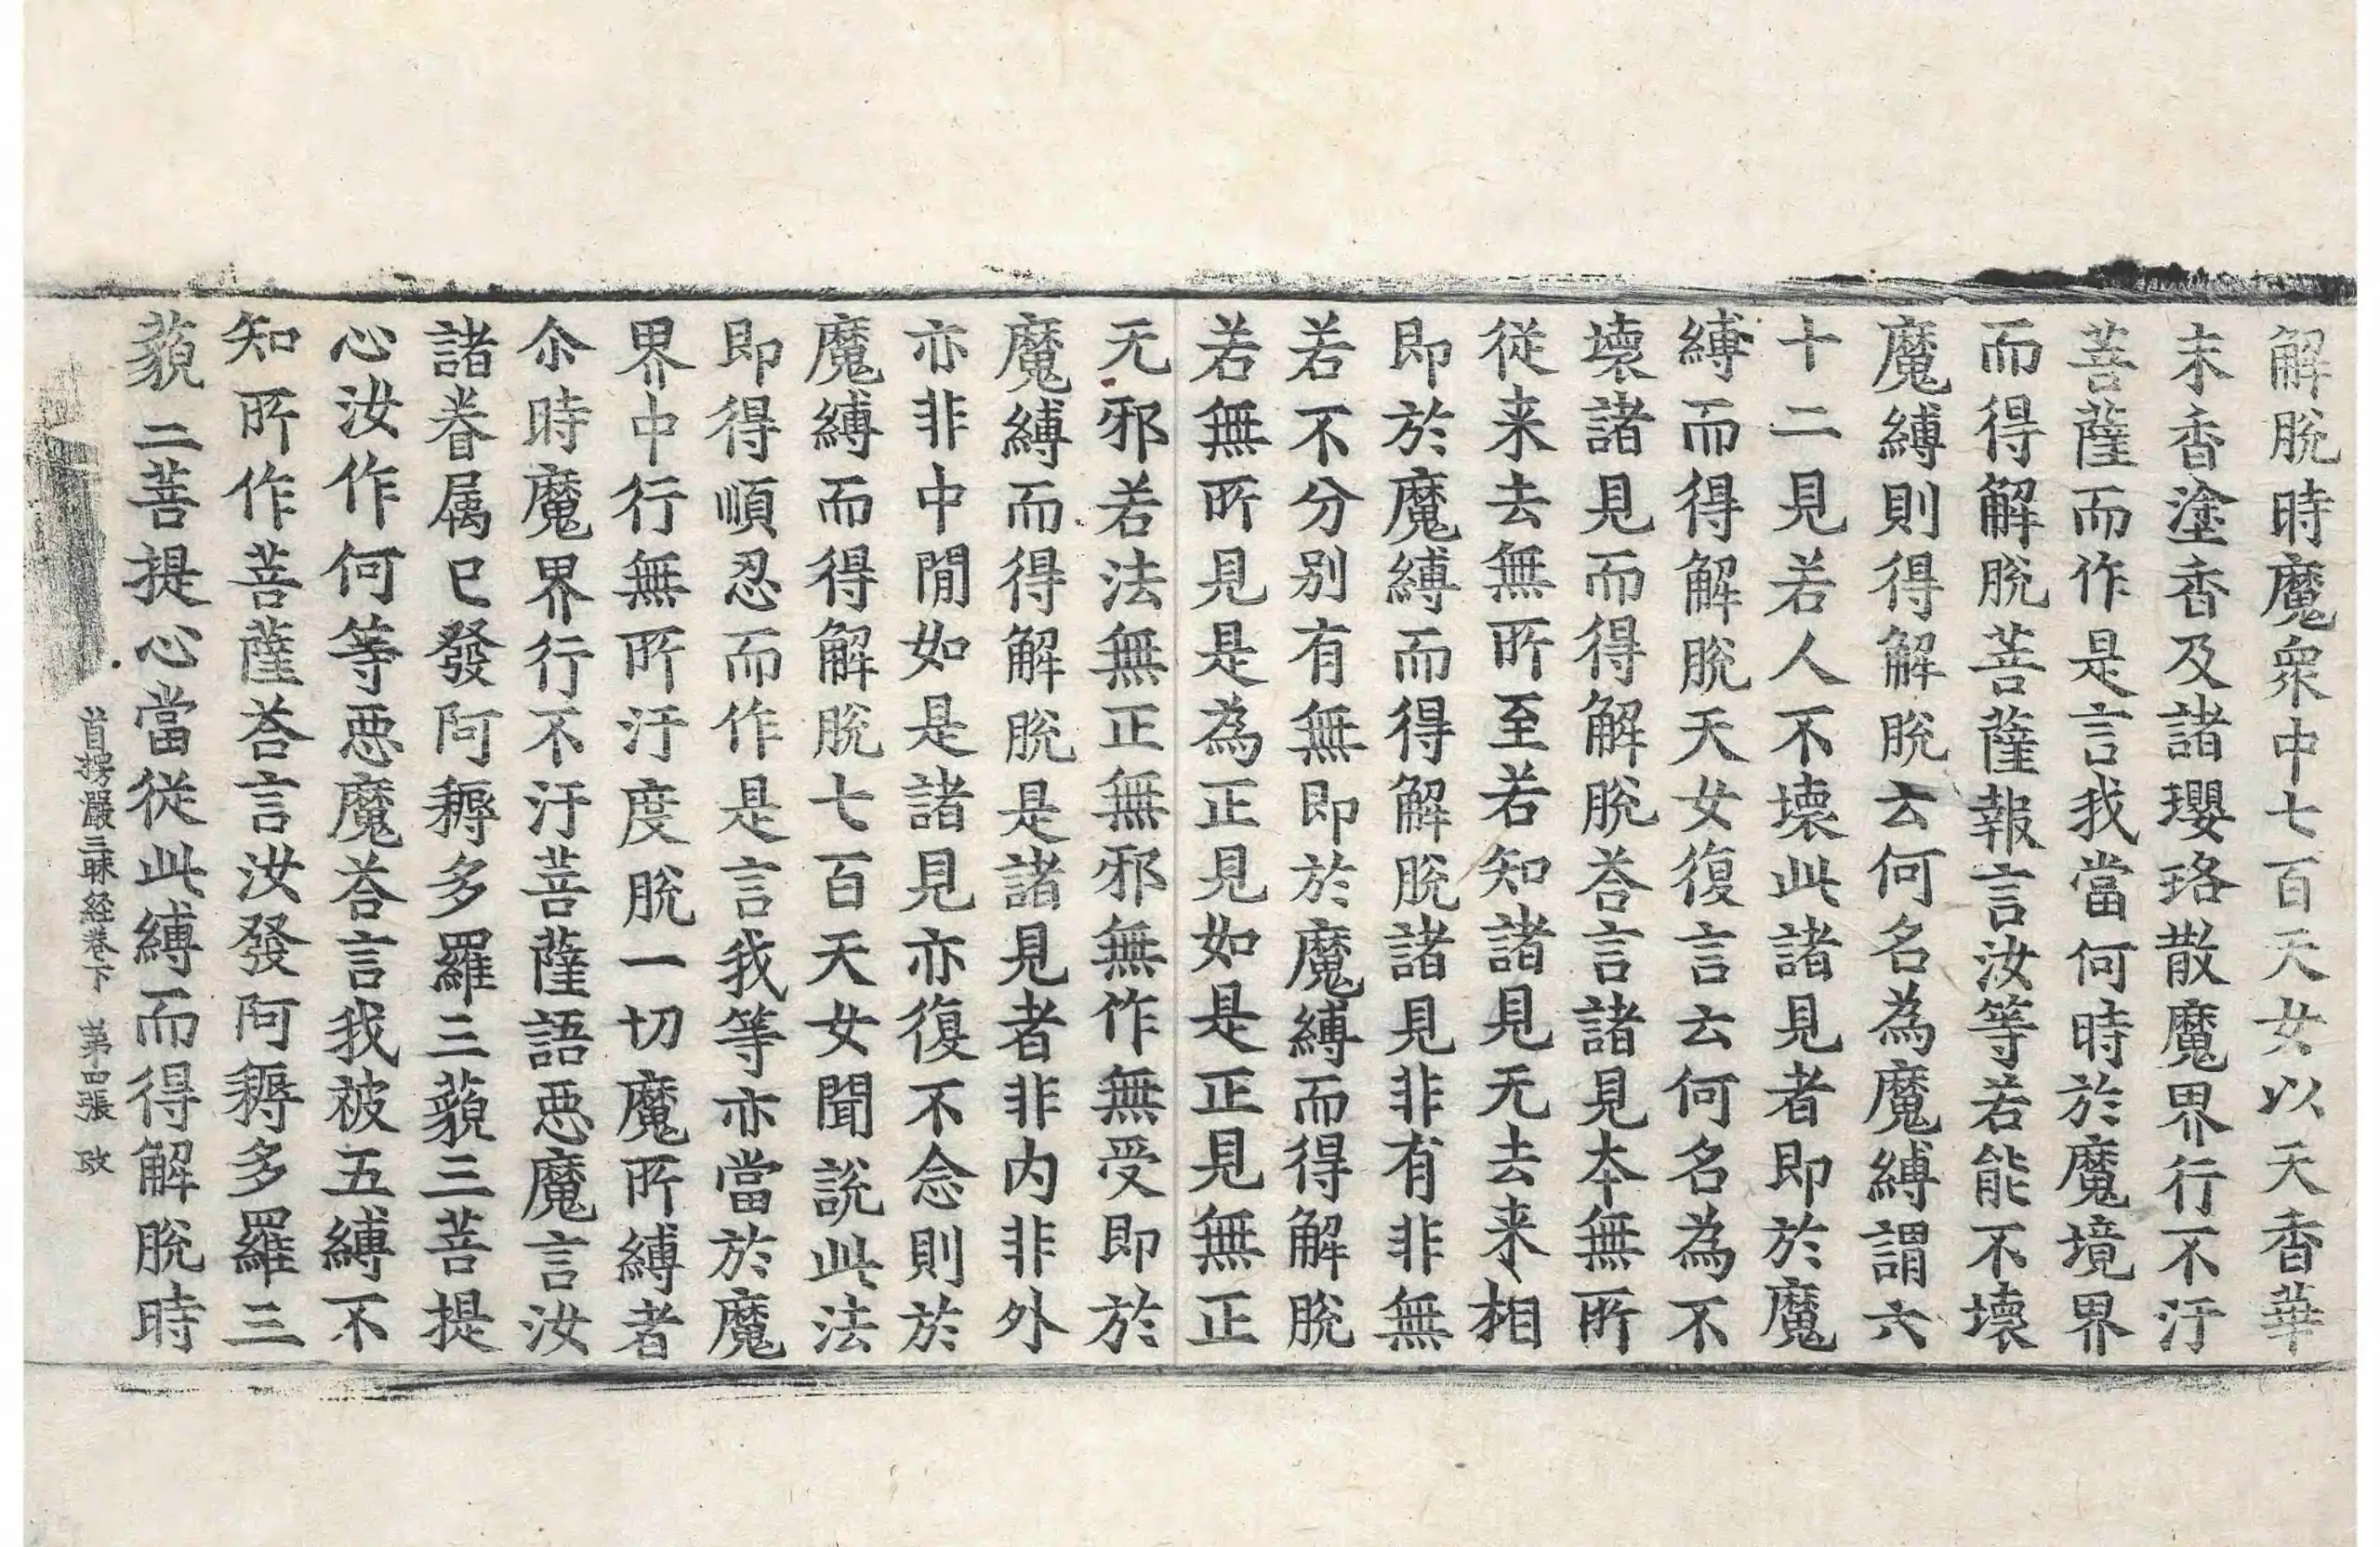 解脫時魔衆中七百天女以天香華
末香塗香及諸瓔珞散魔界行不汙
菩薩而作是言我當何時於魔境界
而得解脫菩薩報言汝等若能不壞
魔縛則得解脫云何名為魔縛謂六
十二見若人不壞此諸見者即於魔
縛而得解脫天女復言云何名為不
壞諸見而得解脫荅言諸見本無所
從来去無所至若知諸見无去来相
即於魔縛而得解脫諸見非有非無
若不分别有無即於魔縛而得解脫
若無所見是為正見如是正見無正
无邪若法無正無邪無作無受即於
魔縛而得解脫是諸見者非内非外
亦非中閒如是諸見亦復不念則於
魔縛而得解脫七百天女聞說此法
即得順忍而作是言我等亦當於魔
界中行無所汙度脫一切魔所縛者
尒時魔界行不汙菩薩語惡魔言汝
諸眷属已發阿耨多羅三藐三菩提
心汝作何等惡魔荅言我被五縛不
知所作菩薩荅言汝發阿耨多羅三
藐三菩提心當從此縛而得解脫時
首楞嚴三昧経卷下 第四張 改